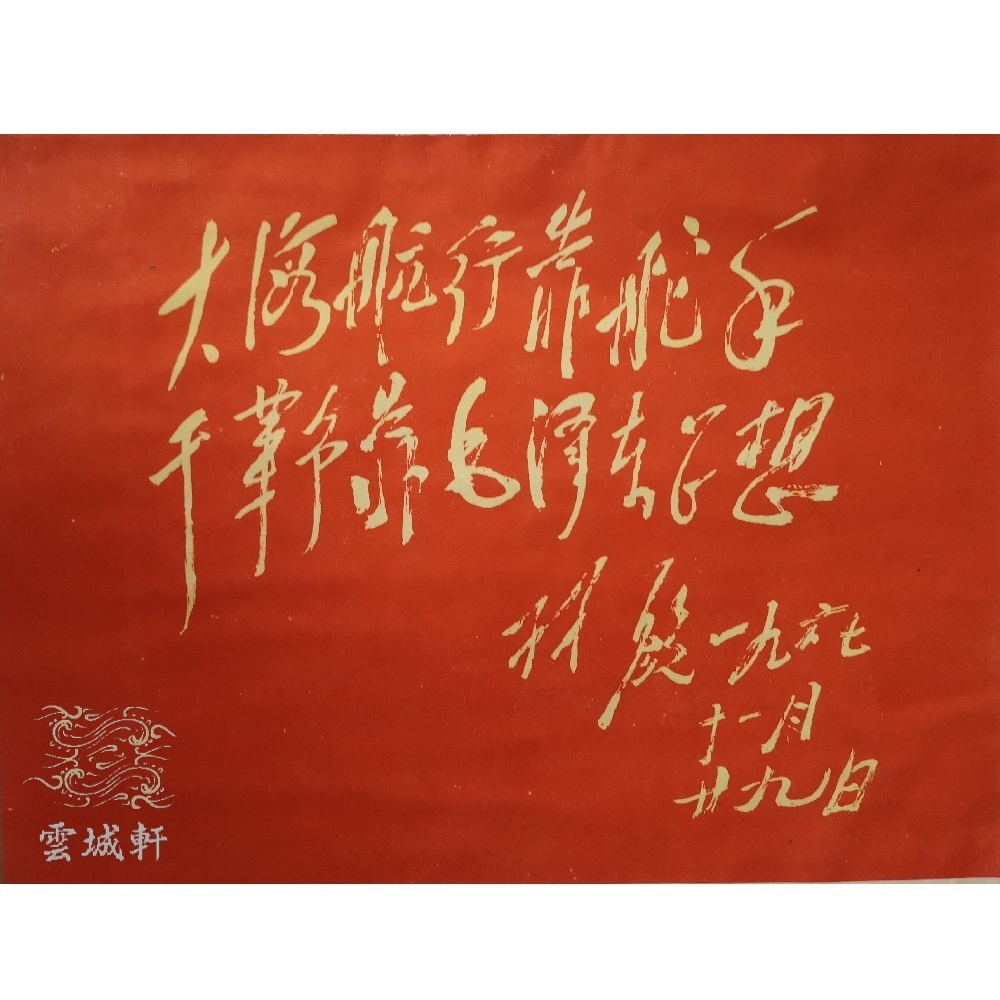 大海航行靠舵手
干革命靠毛泽东思想
林彪一九六七
十一月
廿九日
雲城軒